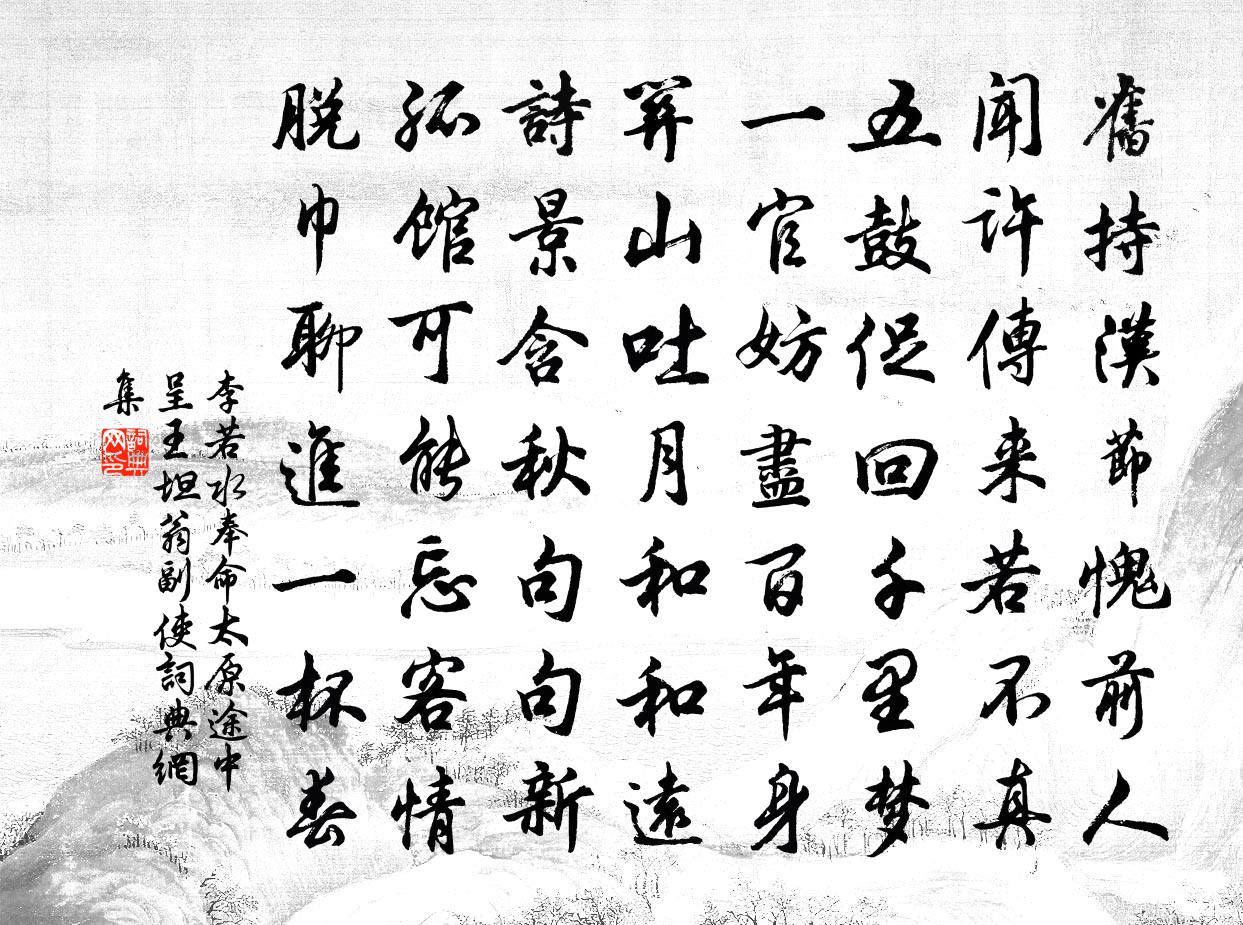 舊持漢節愧前人
聞許傳来若不真
五鼓促回千里梦
一官妨盡百年身
關山吐月和和遠
詩景含秋句句新
孤館可能忘客情
脱巾聊進一杯春
李若水奉命太原途中
呈王坦翁副使詞典網
集
詞典网印